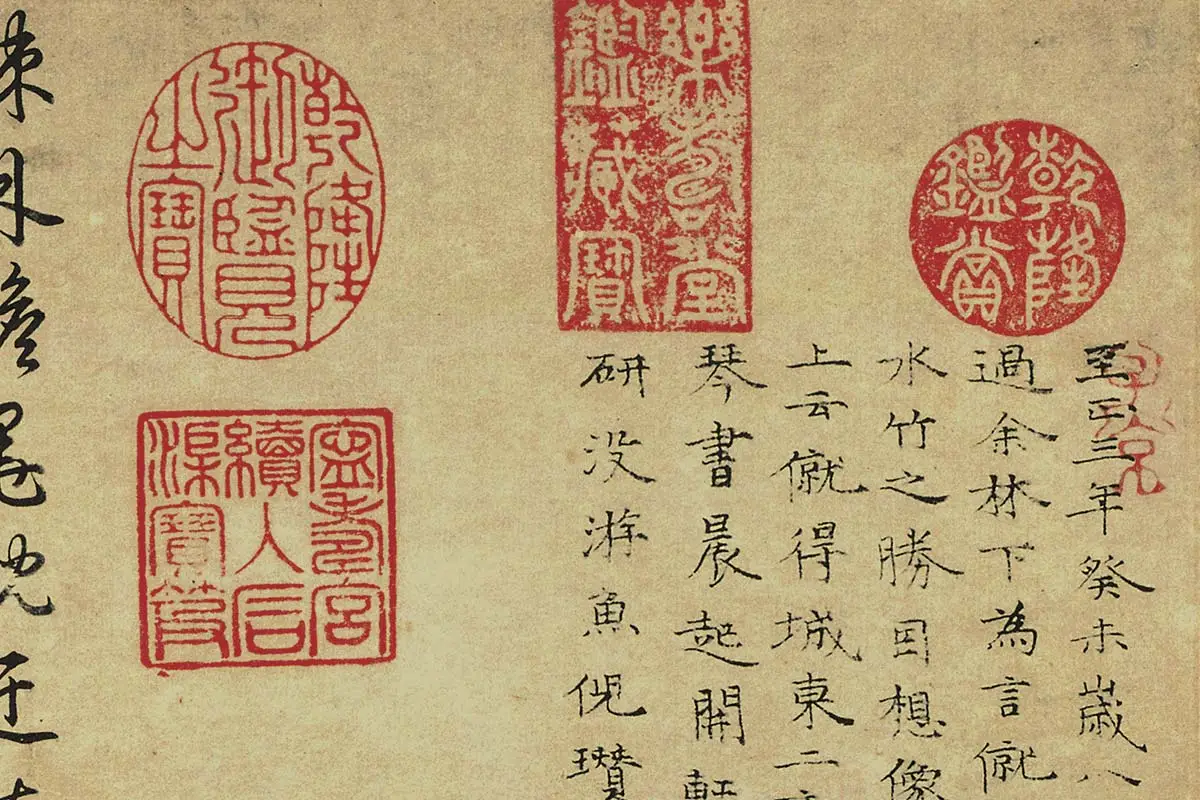 至正三年癸未歲八
過余林下為言僦
水竹之勝因想像
上云僦得城東二
琴書晨起開軒
研没游魚倪瓚
乾隆鑑賞
樂壽堂鑑藏寶
乾隆御覽之寶
寧壽宮續入石渠寶笈